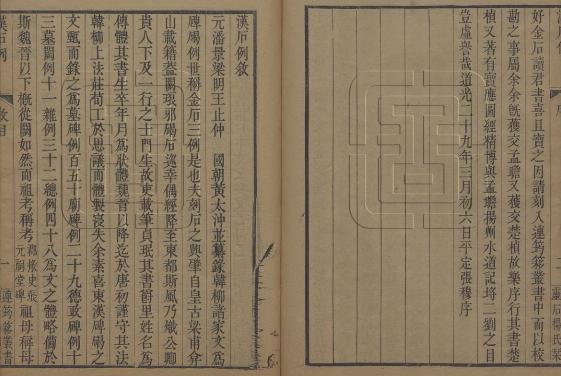 好金石讀君書喜且寶之因請刻入連筠簃叢書中而以校
勘之事屬余余旣獲交孟瞻又獲交楚楨故樂序行其書楚
楨又著有寶應圖經精博與孟瞻揚州水道記埒二劉之目
豈虛譽哉道光二十九年三月初六日平定張穆序
靈石楊氏栞
漢石例敘
元潘景梁明王止仲 國朝黃太沖並纂錄韓柳諸家文爲
碑碣例世稱金石三例是也夫刻石之興肇自皇古梁甫弇
山載籍盍闕琅邪碣石巡幸偶經降至東都斯風乃熾公卿
貴人下及一行之士門生故吏載筆貞珉其書爵里姓名爲
傳體其書生卒年月爲狀體魏晉以降迄於唐初謹守其法
韓柳上法莊荀工於思議而體製寖失余素喜東漢碑碣之
文甄而錄之爲墓碑例百五十廟碑例二十九德政碑例十
三墓闕例十一雜例三十二總例四十八爲文之體略備於
斯魏晉以下槪從闕如然而祖考稱考
祖母稱母
漢石例
敘目
一
連筠簃叢書